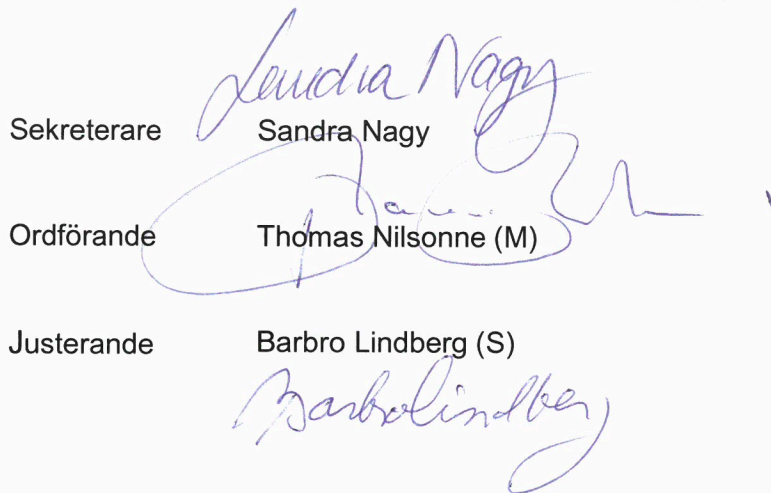 Sandra Nagy
Sekreterare Sandra Nagy
Ordförande Thomas Nilsonne (M)
Justerande Barbro Lindberg (S)
Barbro Lindberg